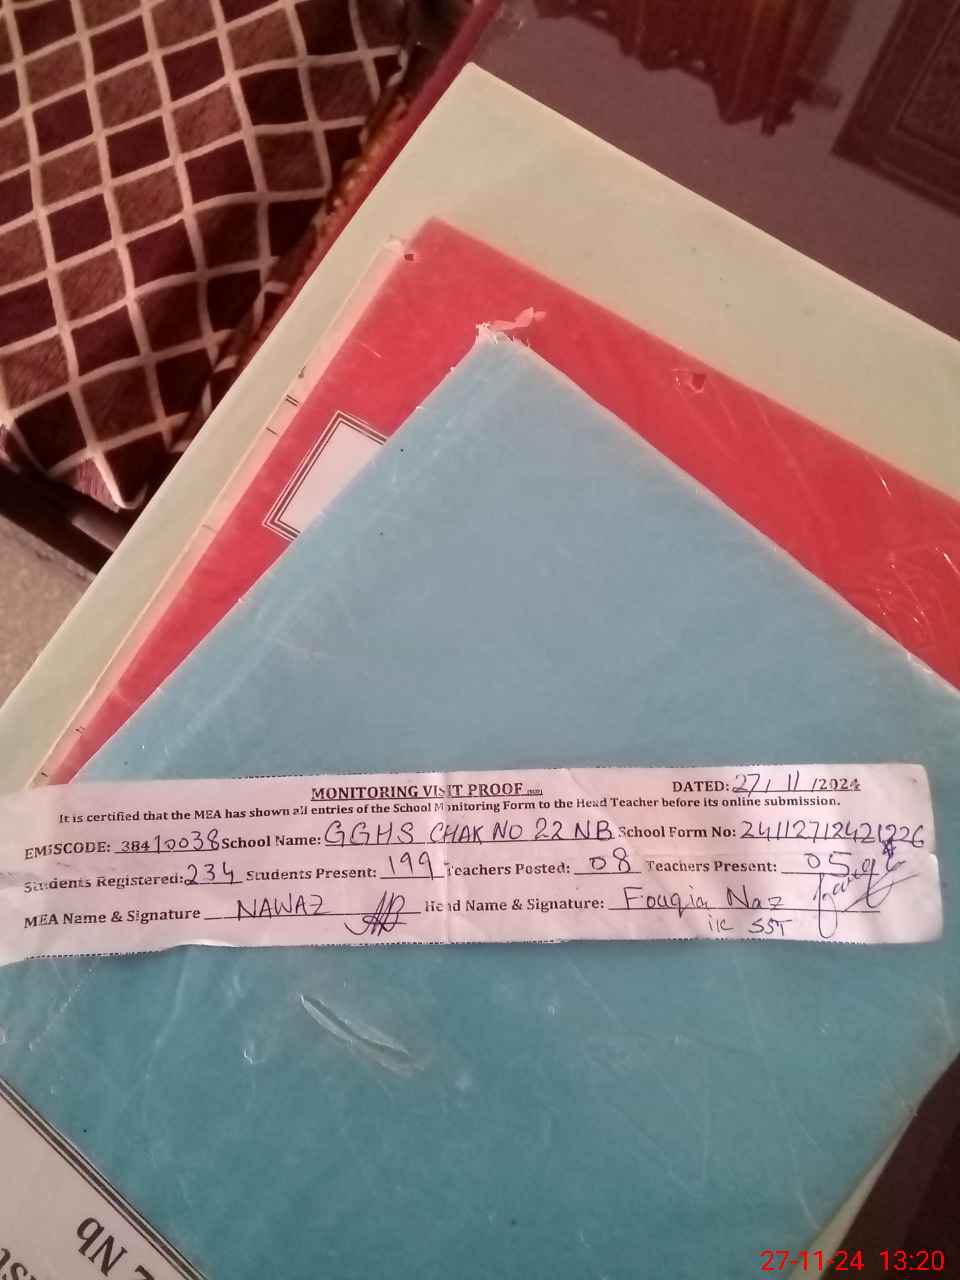 MONITORING VISIT PROOF
DATED: 27/11/2024
It is certified that the MEA has shown all entries of the School Monitoring Form to the Head Teacher before its online submission.
EMISCODE: 38410038 School Name: GGHS CHAK NO 22 NB School Form No:
Students Registered: 234 Students Present: 199 Teachers Posted: 08 Teachers Present: 05
MEA Name & Signature NAWAZ Head Name & Signature: Fouqia Naz
i/c SST
Nb
27-11-24 13:20